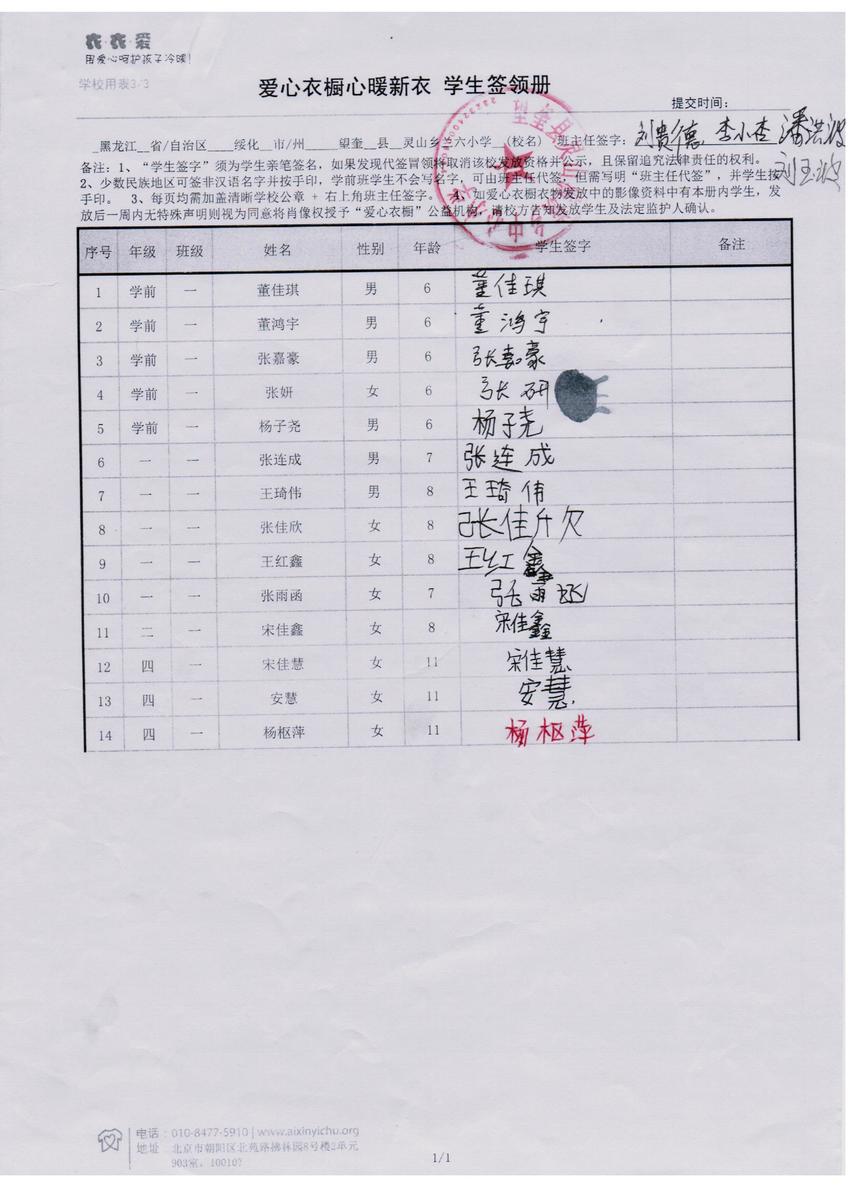 衣·衣·爱
用爱心呵护孩子冷暖!
学校用表3/3
爱心衣橱心暖新衣 学生签领册
提交时间:
_黑龙江__省/自治区____绥化__市/州_____望奎__县__灵山乡兰六小学__(校名) 班主任签字: 刘贵德 李小杏 潘洪波
刘玉波
备注:1、“学生签字”须为学生亲笔签名,如果发现代签冒领将取消该校发放资格并公示,且保留追究法律责任的权利。
2、少数民族地区可签非汉语名字并按手印,学前班学生不会写名字,可由班主任代签,但需写明“班主任代签”,并学生按
手印。 3、每页均需加盖清晰学校公章 + 右上角班主任签字。 4、如爱心衣橱衣物发放中的影像资料中有本册内学生,发
放后一周内无特殊声明则视为同意将肖像权授予“爱心衣橱”公益机构,请校方告知发放学生及法定监护人确认。
序号 年级 班级 姓名 性别 年龄 学生签字 备注
1 学前 一 董佳琪 男 6 董佳琪
2 学前 一 董鸿宇 男 6 董鸿宇
3 学前 一 张嘉豪 男 6 张嘉豪
4 学前 一 张妍 女 6 张研
5 学前 一 杨子尧 男 6 杨子尧
6 一 一 张连成 男 7 张连成
7 一 一 王琦伟 男 8 王琦伟
8 一 一 张佳欣 女 8 张佳欣
9 一 一 王红鑫 女 8 王红鑫
10 一 一 张雨函 女 7 张雨
11 二 一 宋佳鑫 女 8 宋佳鑫
12 四 一 宋佳慧 女 11 宋佳慧
13 四 一 安慧 女 11 安慧.
14 四 一 杨枢萍 女 11 杨枢萍
电话:010-8477-5910 | www.aixinyichu.org
地址:北京市朝阳区北苑路拂林园8号楼2单元
903室,100107
1/1